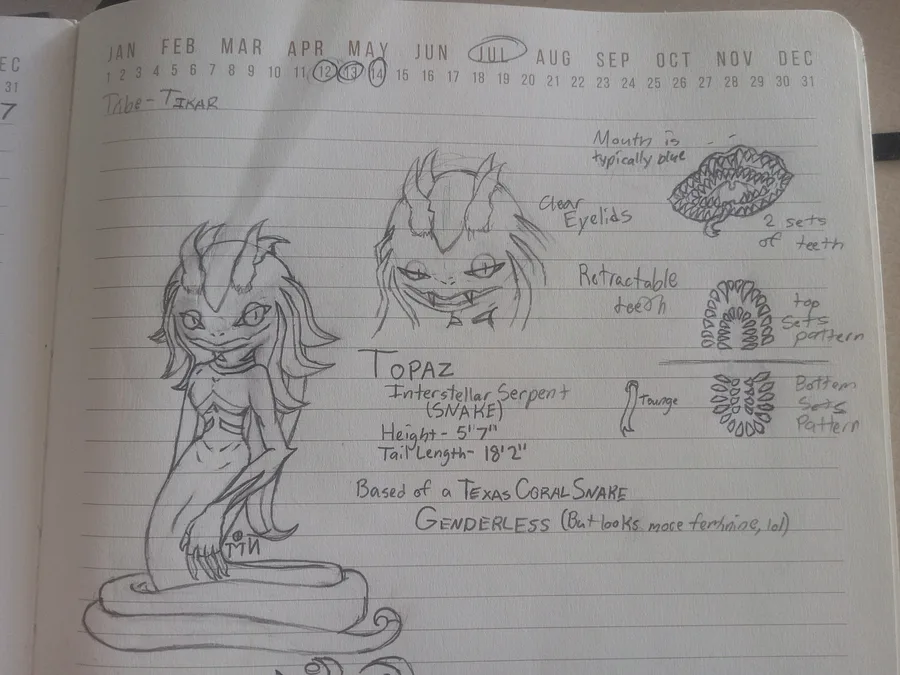 EC
31
7
JAN FEB MAR APR MAY JUN JUL AUG SEP OCT NOV DEC
1 2 3 4 5 6 7 8 9 10 11 12 13 14 15 16 17 18 19 20 21 22 23 24 25 26 27 28 29 30 31
Tribe - TIKAR
Mouth is
typically blue
Clear
Eyelids
2 sets
of teeth
Retractable
teeth
top
sets
pattern
TOPAZ
Interstellar Serpent
(SNAKE)
Height - 5'7"
Tail Length - 18'2"
Tounge
Bottom
Sets
Pattern
BASED of a TEXAS CORAL SNAKE
GENDERLESS (But looks more feminine, lol)